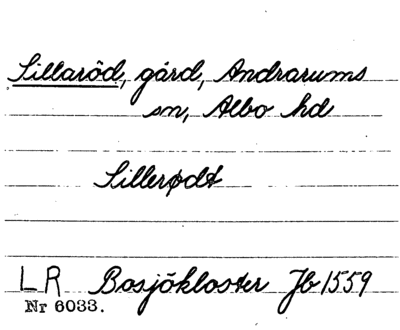 Sillaröd, gård, Andrarums
sn, Albo hd
Sillerødt
LR Bosjökloster Jb 1559
Nr 6033.